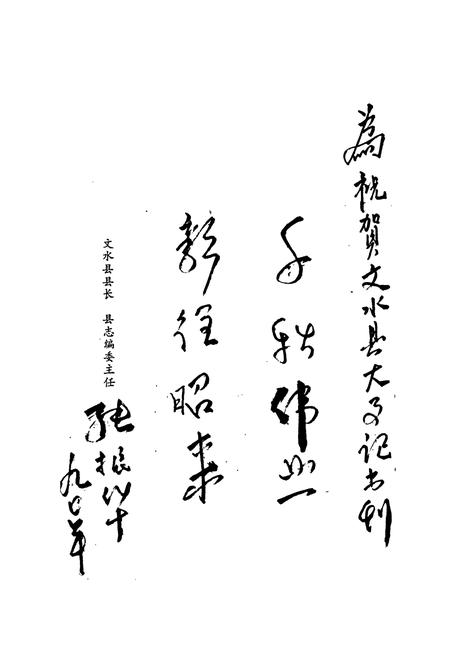 為祝賀文水县大事记出刊
千秋伟业
彰往昭来
文水县县长 县志编委主任
张振华
九〇年